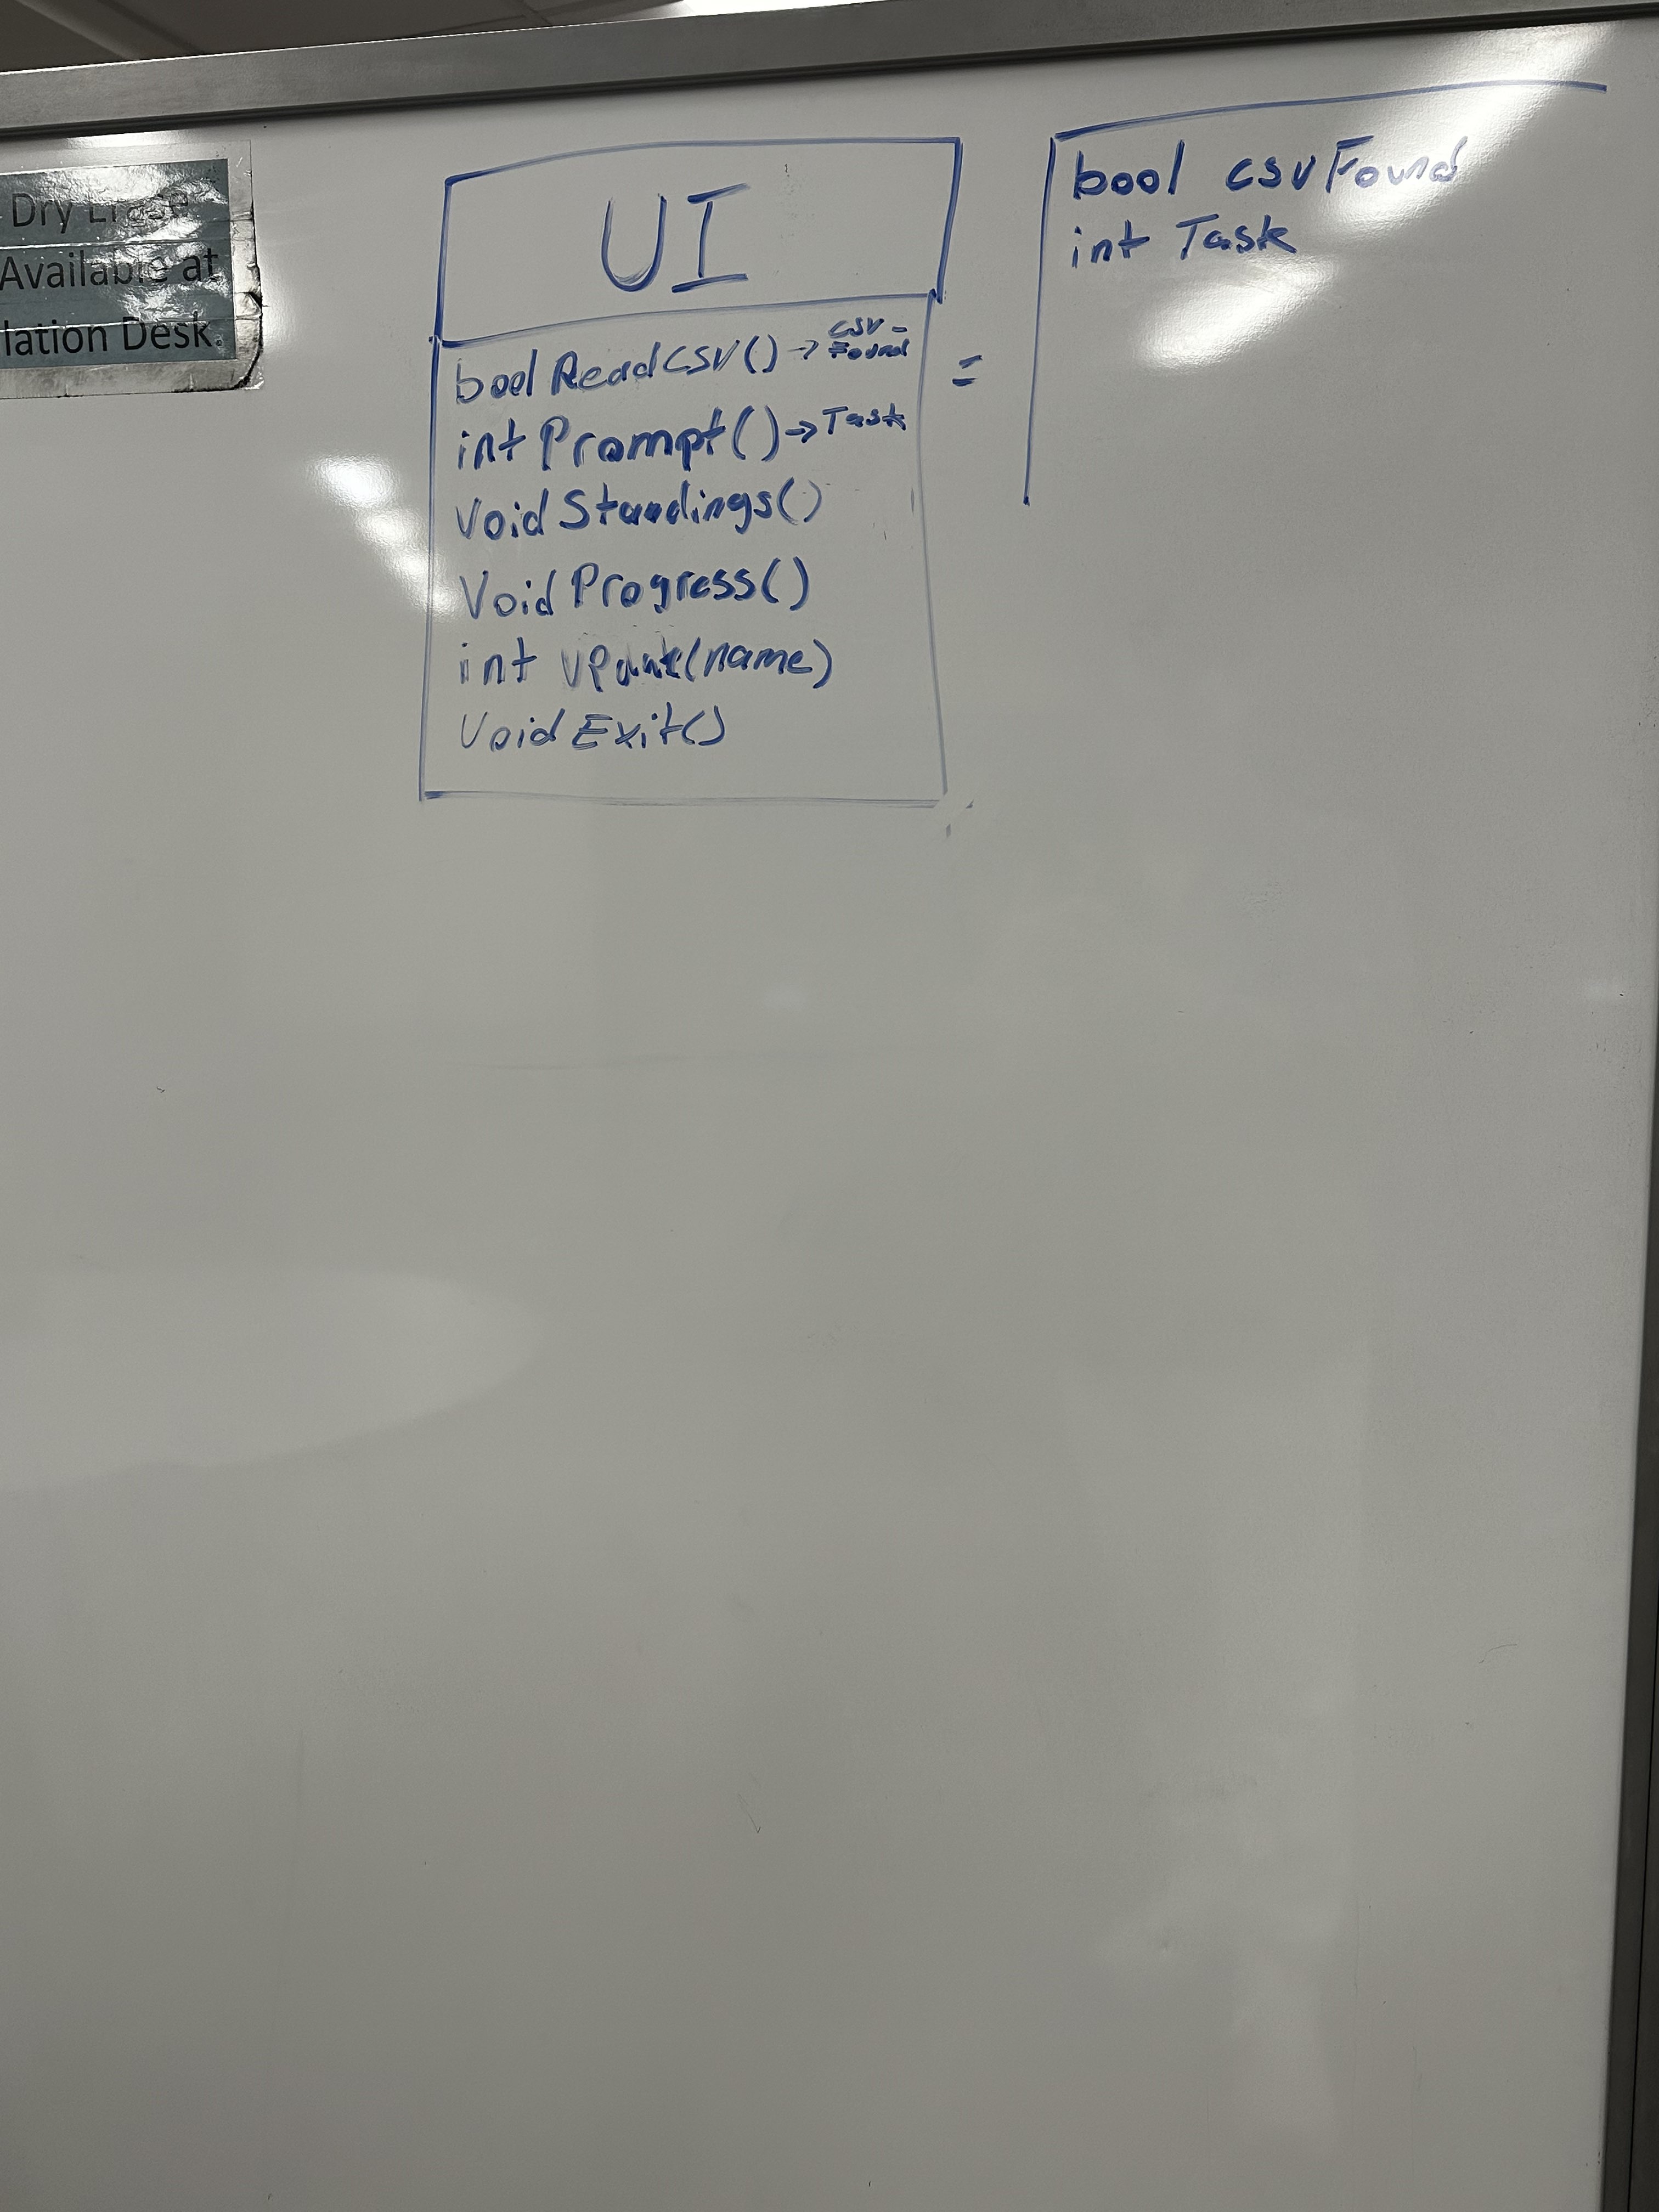 Dry Erase
Available at
lation Desk.
UI
bool ReadCSV() → CSV-
Found
int Prompt() → Task
void Standings()
Void Progress()
int (name)
Void Exit()
=
bool csvFound
int Task